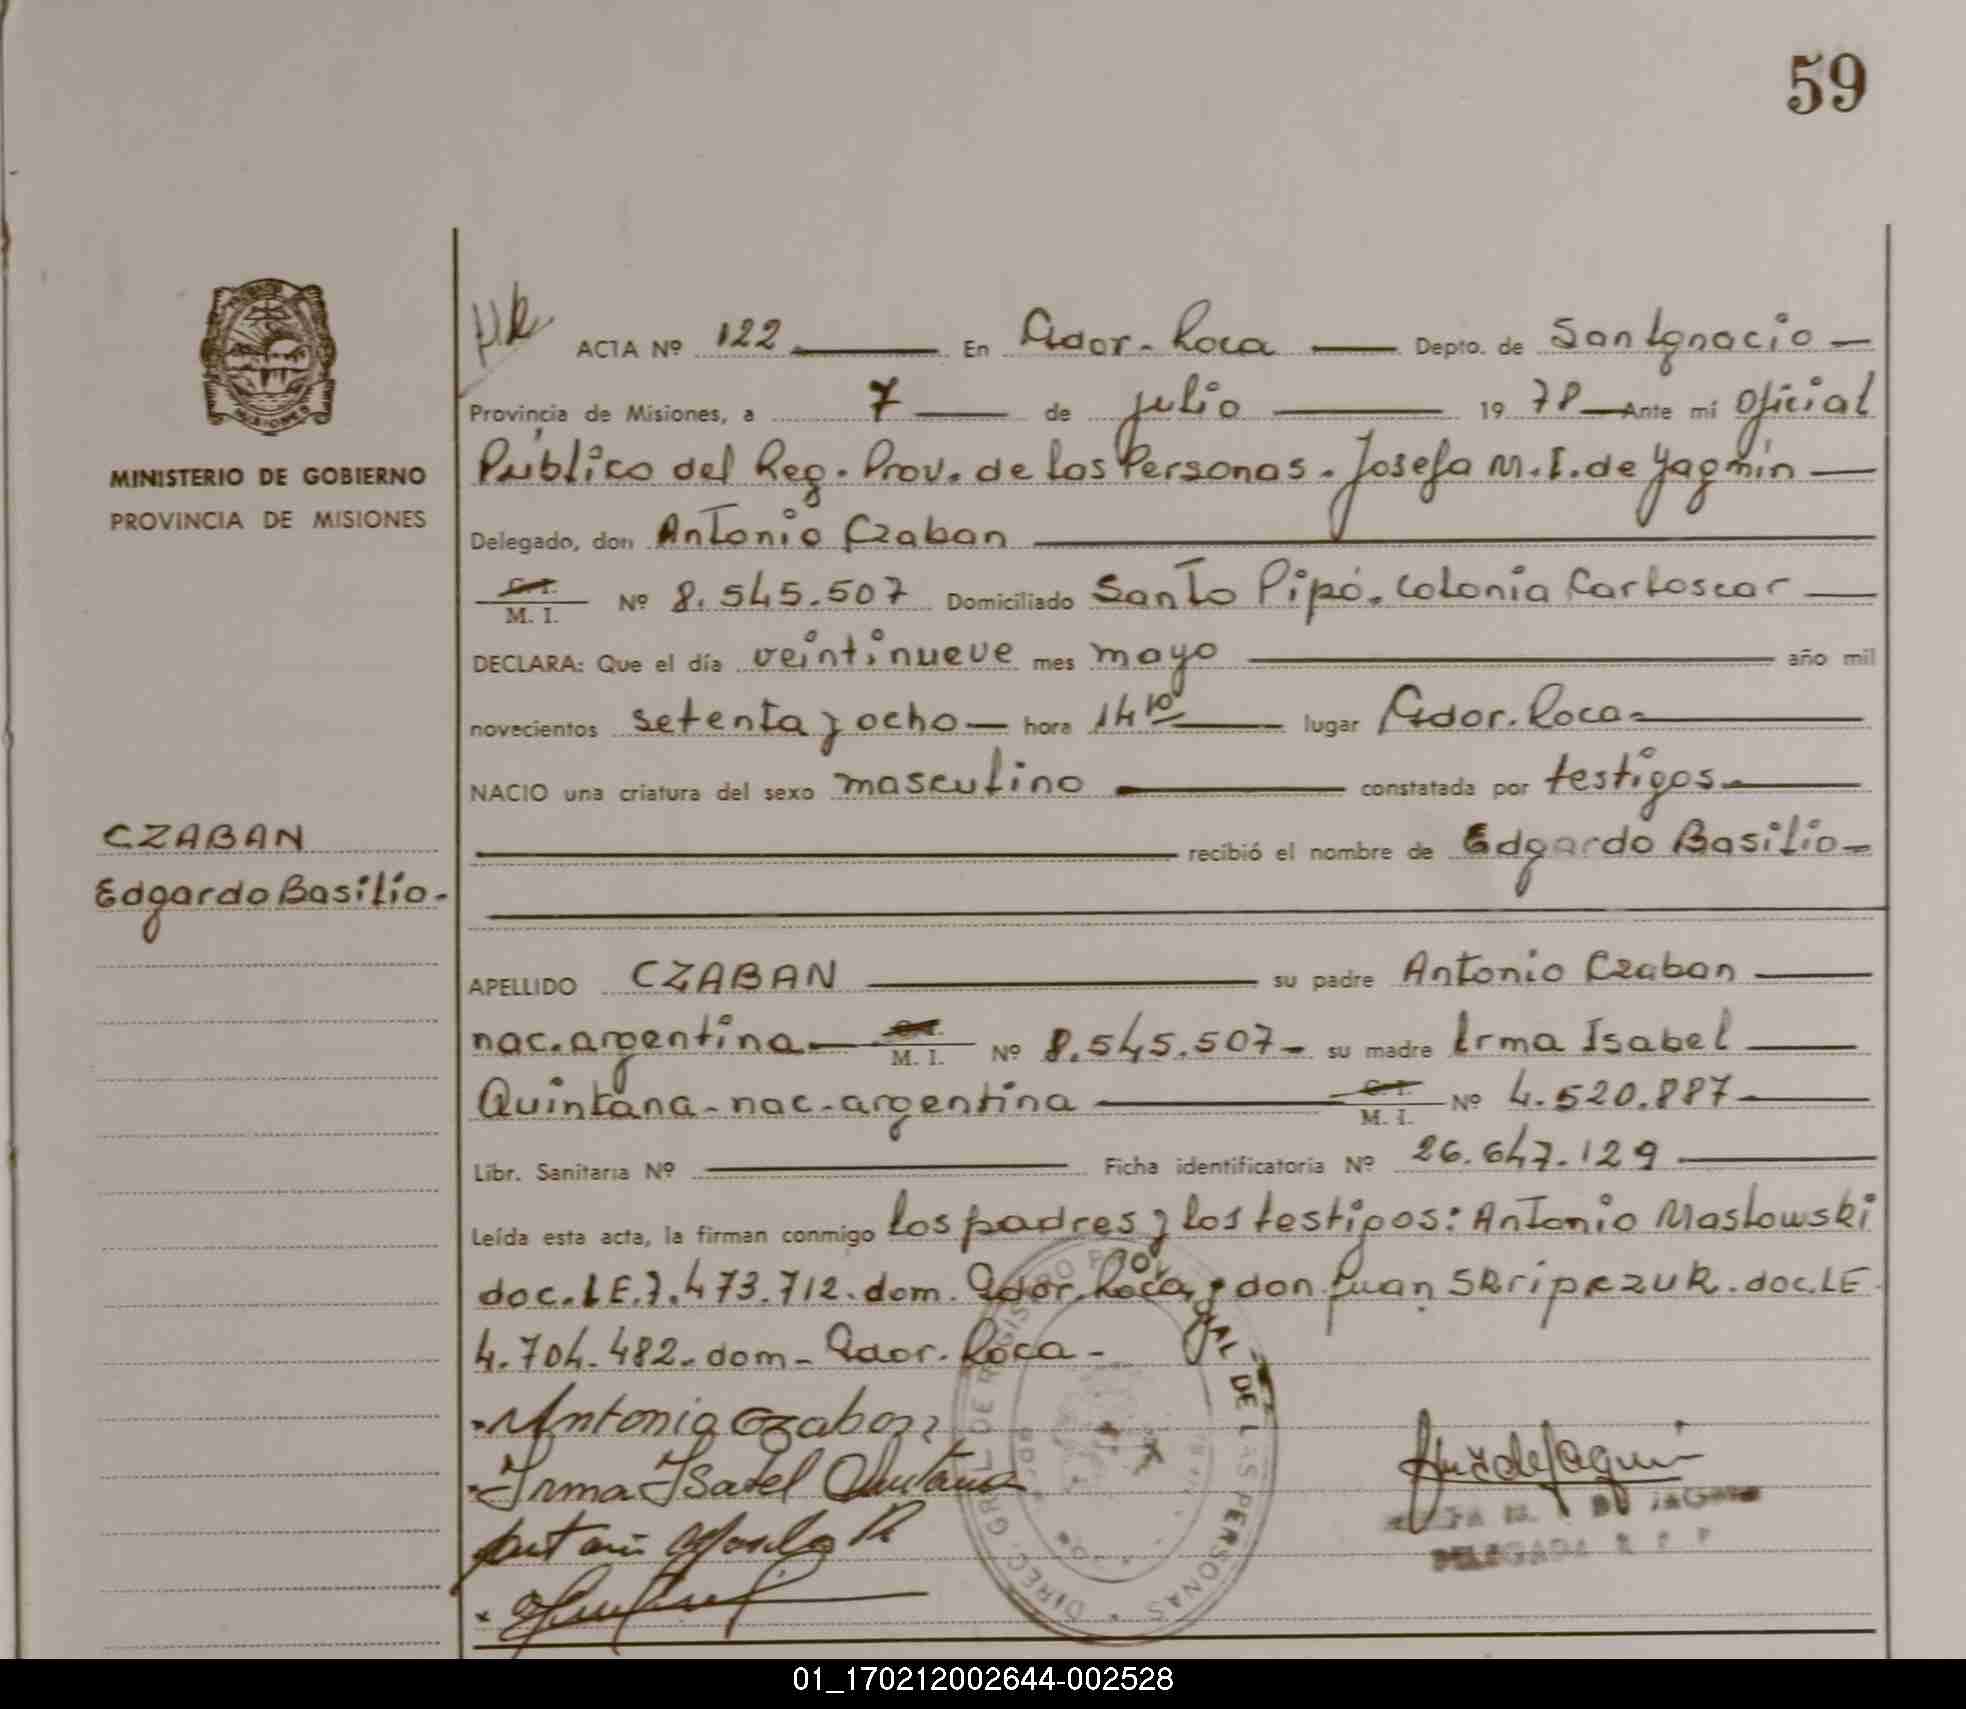 59
ACTA Nº 122 En Gdor. Roca Depto. de San Ignacio
Provincia de Misiones, a 7 de julio 19 78 Ante mí Oficial
MINISTERIO DE GOBIERNO
PROVINCIA DE MISIONES
Público del Reg. Prov. de las Personas. Josefa M. I. de Yagmín
Delegado, don Antonio Czaban
C. I.
M. I. Nº 8.545.507 Domiciliado Santo Pipó. Colonia
DECLARA: Que el día veintinueve mes mayo año mil
novecientos setenta y ocho hora 14 10 lugar Gdor. Roca
NACIO una criatura del sexo masculino constatada por testigos
CZABAN
recibió el nombre de Edgardo Basilio
Edgardo Basilio.
APELLIDO CZABAN su padre Antonio Czaban
nac. argentina C. I.
M. I. Nº 8.545.507 su madre Irma Isabel
Quintana - nac. argentina C. I.
M. I. Nº 4.520.887
Libr. Sanitaria Nº Ficha identificatoria Nº 26.647.129
Leída esta acta, la firman conmigo los padres y los testigos: Antonio Maslowski
doc. L E. 7.473.712. dom. Gdor. Roca, y don Juan Skripczuk. doc. LE
4.704.482. dom - Gdor. Roca -
Antonio Czaban
Irma Isabel Quintana
DIREC. GRAL DE REGISTRO DE LAS PERSONAS
DELEGADA R P P
01_170212002644-002528